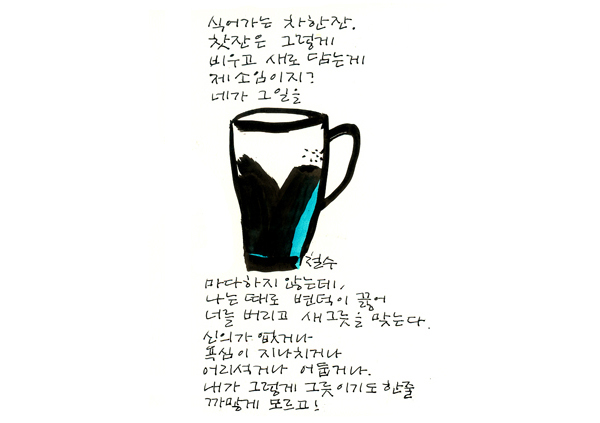 식어가는 차한잔.
찻잔은 그렇게
비우고 새로 담는게
제 소임이지?
네가 그일을
철수
마다하지 않는데,
나는 때로 변덕이 끓어
너를 버리고 새그릇을 맞는다.
신의가 없거나
욕심이 지나치거나
어리석거나 어둡거나.
내가 그렇게 그릇이기도 한줄
까맣게 모르고!